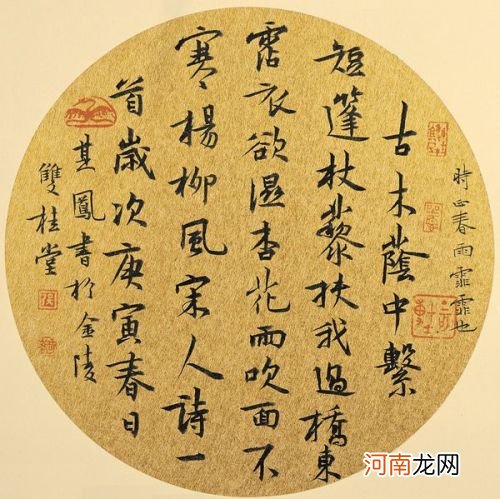 時正春雨霏霏也
古木蔭中繫
短篷杖藜扶我過橋東
霑衣欲濕杏花雨吹面不
寒楊柳風宋人詩一
首歲次庚寅春日
其鳳書於金陵
雙桂堂
河南龙网